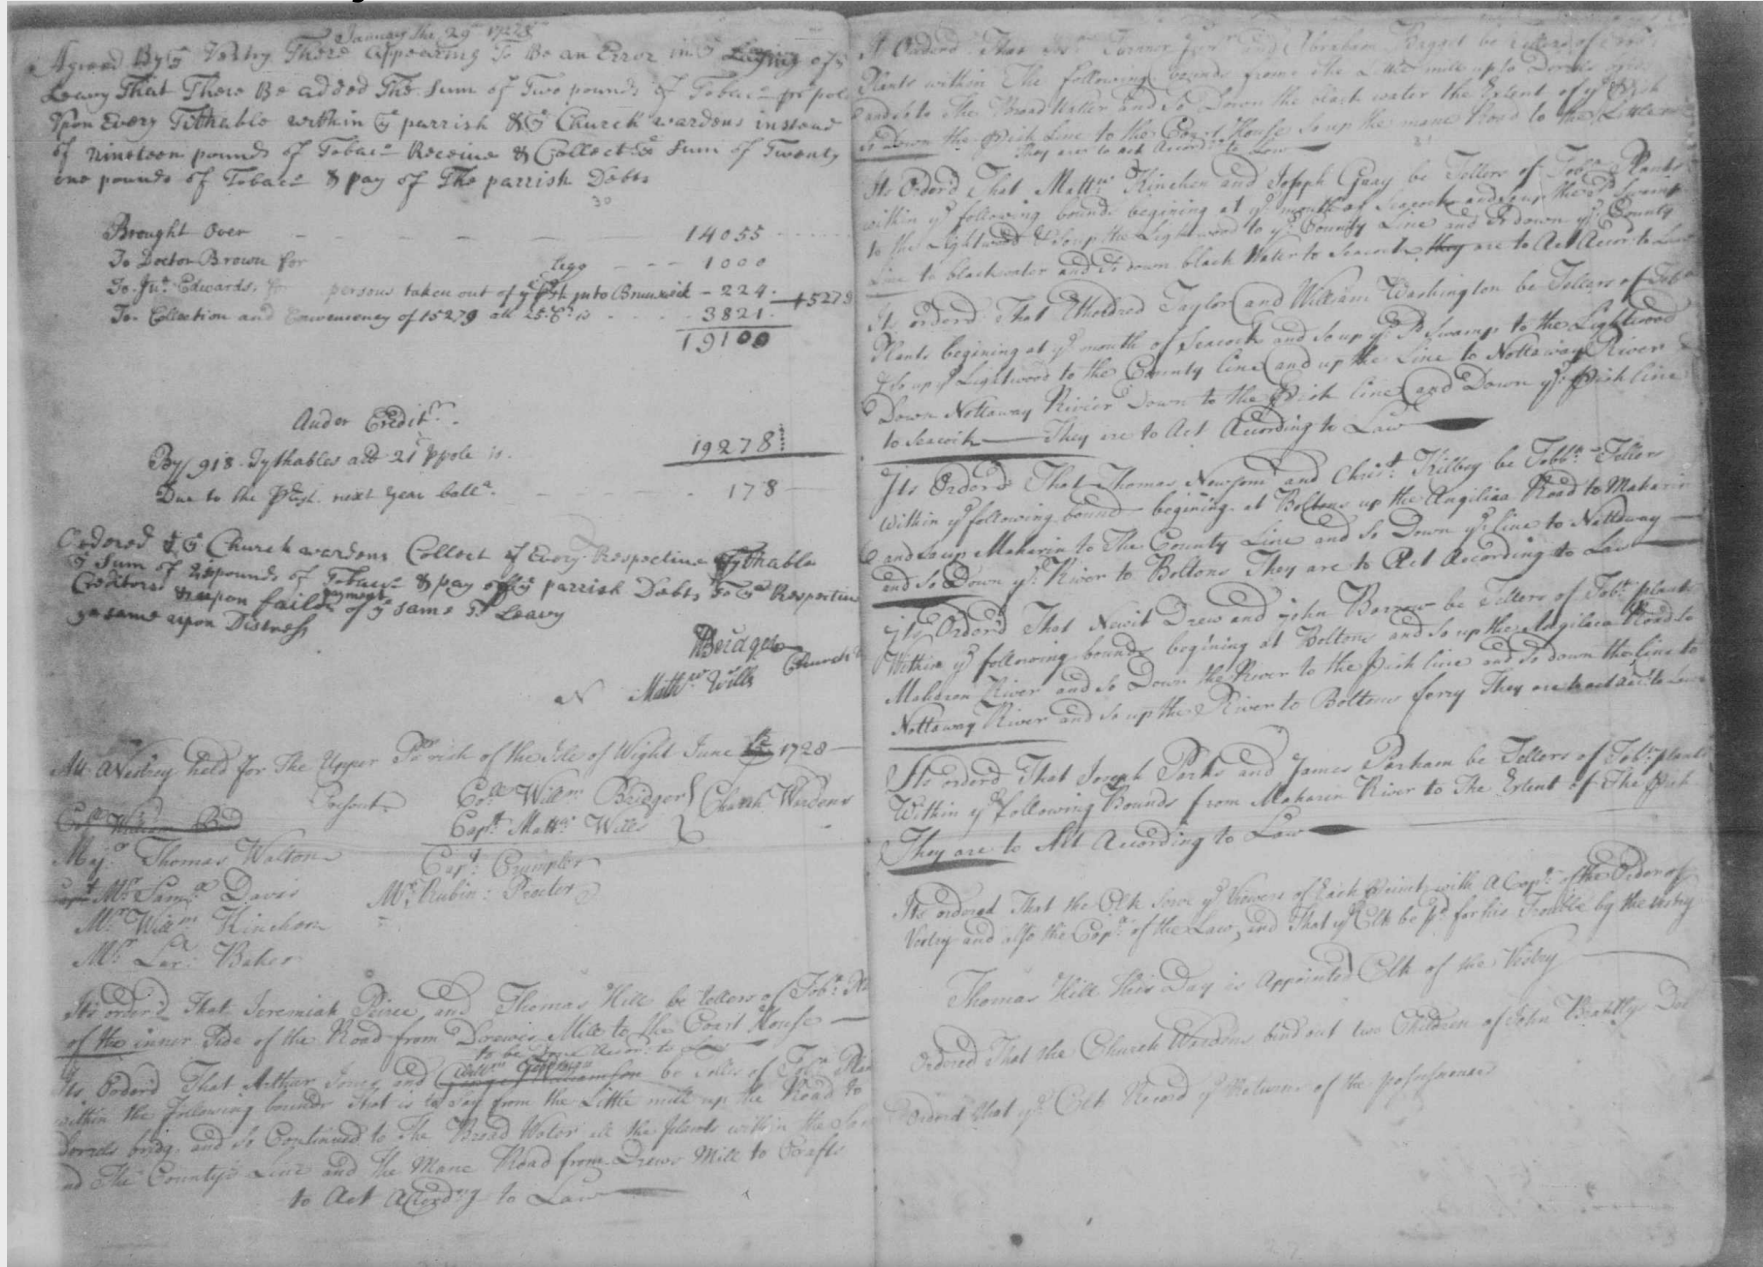 January the 29th 1727/8
Agreed By ye Vestry There Appearing To Be an Error in ye Laying of ye
Leavy That There Be added The Sum of Two pounds of Tobaco pr pole
Upon Every Tithable within ye parrish & ye Church wardens instead
of Nineteen pounds of Tobaco Receive & Collect ye Sum of Twenty
one pounds of Tobaco & pay of The parrish Debts
30
Brought Over 14055
To Doctor Brown for Legg 1000
To Jno. Edwards for persons taken out of ye Psh into Brunswick 224 15279
To Collection and Conveniency of 15279 att 25 is 3821
19100
Under Credit
By 918 Tythables att 21 pr pole is 19278
Due to the Prish next year balla. 178
Ordered ye Church wardens Collect of Every Respective Tythable
ye Sum of 21 pounds of Tobaco & pay of ye parrish Debts To ye Respective
Creditors & upon faild payment of ye same To Leavy
ye same upon Distress
WBridger
Mathw Wills Church
Att a Vestrey held for The Upper Parish of the Isle of Wight June 12 1728
Present Coll Willm Bridger Church Wardens
Capt William Bud Capt. Mattw Wills
Majr Thomas Walton Capt Crumpler
Capt Mr Saml Davis Mr Rubin: Procter
Mr Willm Kinchen
Mr Lar: Baker
Its orderd That Jeremiah Peirce and Thomas Hill be tellers of Toba.
of the inner Side of the Road from Drewis Mill to the Court House
to be Done Accor: to Law
Its Orderd That Arthur Jones and be Tellers of Toba
within the following bounds that is to say from the Little mill up the Road to
bridg, and so Continued to The Broad Water all the plants within the
and The Countys Line and the Mane Road from Drews Mill to Crafts
to Act Accordng to Law
It Orderd That Turner Junr and Abraham Bagact be Tellers of
Plants within The following bounds frome the Little mill up to
and so to The Broad Watter and So Down the black water the Extent of ye Prish
so Down the Prish Line to the Court House So up the mane Road to the Little
They are to act Accordg to Law
Its Orderd That Mattw Kinchen and Joseph Gray be Tellers of Toba Plants
within ye following bounds begining at ye mouth of Seacock and so up the sd Swamp
to the Lightwood & so up the Lightwood to ye County Line and so down ye County
Line to blackwater and so down black Water to Seacock they are to Act Accor to Law
Its orderd That Etheldred Taylor and William Washington be Tellers of Toba
Plants begining at ye mouth of Seacock and so up ye sd Swamp to the Lightwood
& so up ye Lightwood to the County line and up the Line to Nottaway River
Down Nottaway River Down to the Prish line and Down ye Prish line
to Seacock They are to Act According to Law
Its Orderd That Thomas Newsom and Christ Kilbey be Tobbo Tellers
within ye following bound begining at Boltons up the Angiliaa Road to Maharin
and so up Maharin to The County Line and so Down ye Line to Nottoway
and So Down ye River to Boltons They are to Act According to Law
Its Orderd That Newit Drew and John Barrow be Tellers of Tobo plants
Within ye following bounds begining at Boltons and so up the Angiliaa Road to
Maharon River and so Down the River to the Prish line and so down the Line to
Nottoway River and so up the River to Boltons ferry They are to act Acc: to Law
Its orderd That Joseph Parks and James Parham be Tellers of Tobo plants
Within ye following Bounds from Maharin River to The Extent of The Prish
They are to Act According to Law
Its ordered That the Clk Serve ye Viewers of Each Precinct with a Copy of the Order of
Vestry and also the Copy of the Law, and That ye Clk be pd for his Trouble by the vestry
Thomas Hill this Day is Appointed Clk of the Vestry
Ordered That the Church Wardens bind out two Children of John
Orderd that ye Clk Record ye Returns of the possessioners